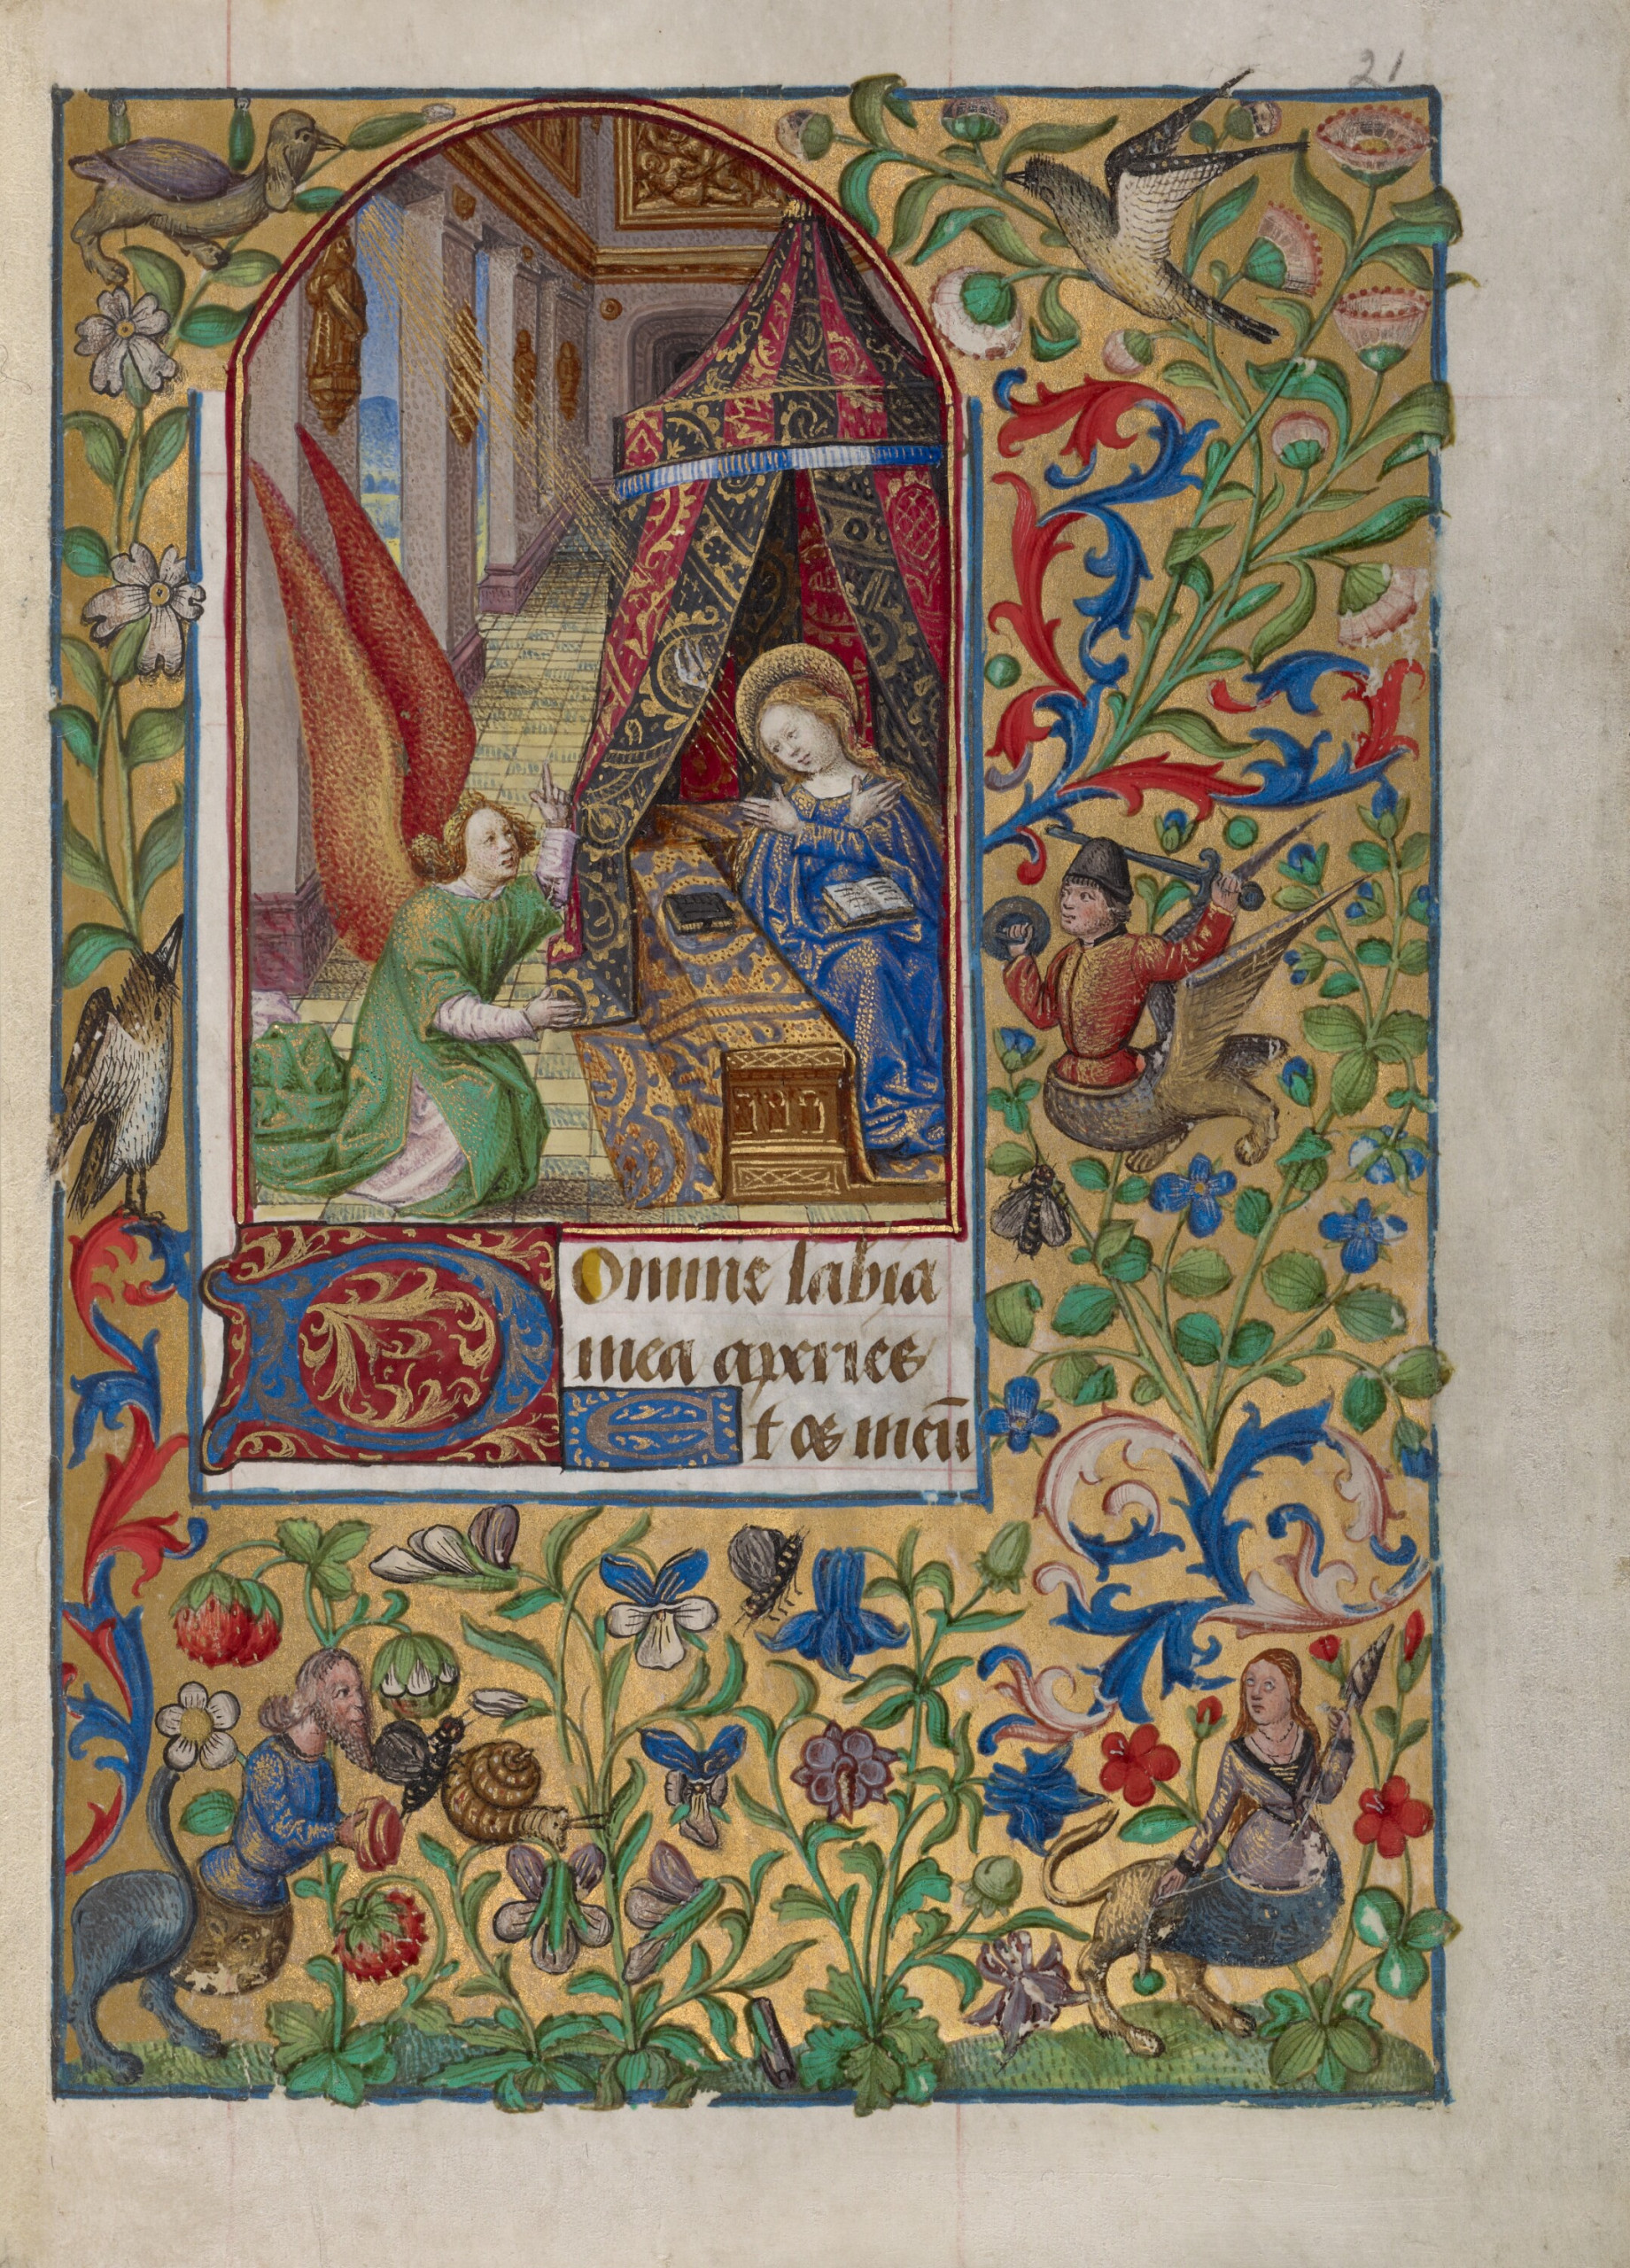 21
Domine labia
mea aperies
Et os meū